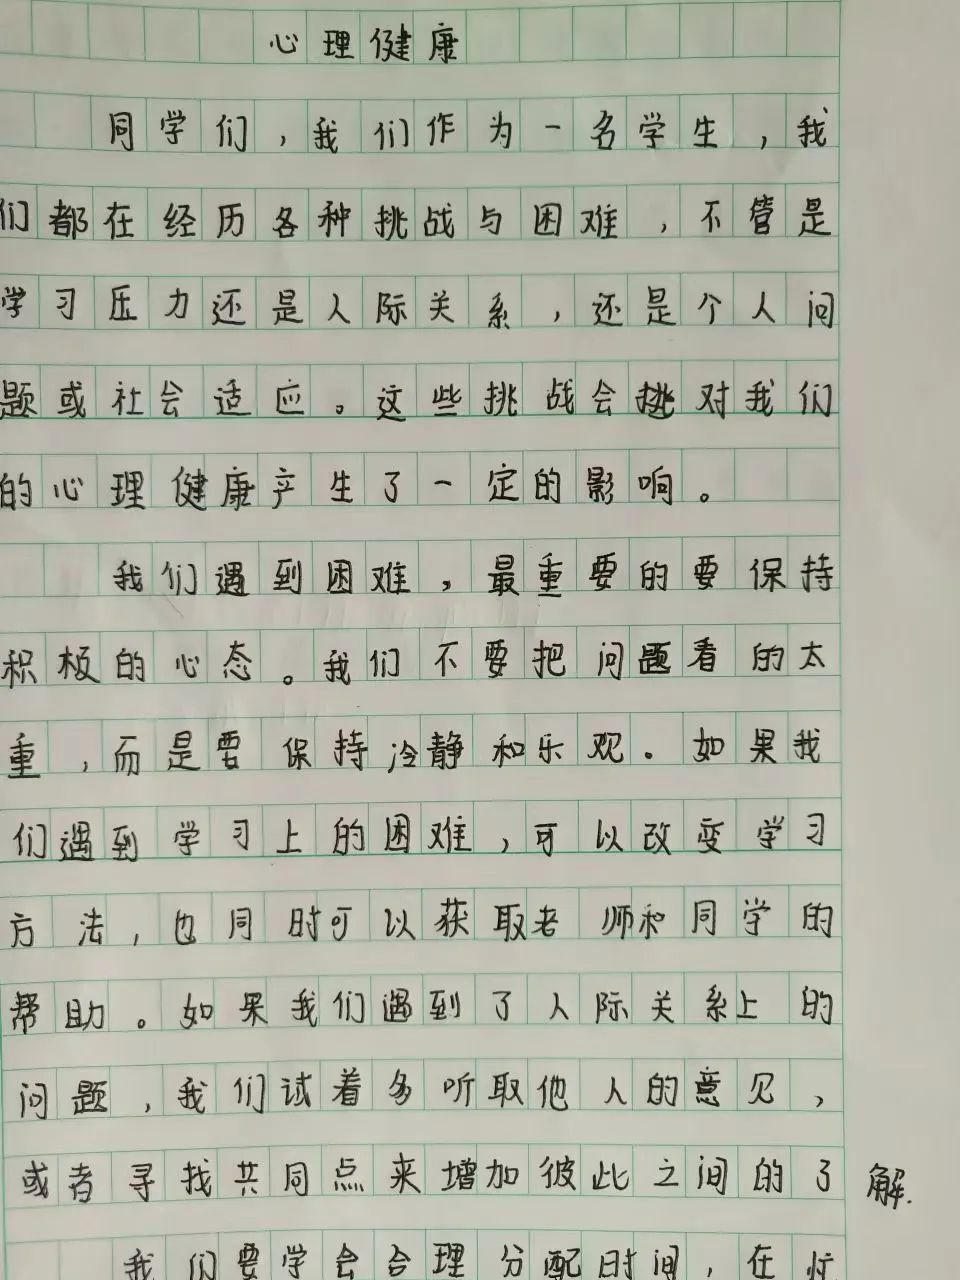 心理健康
同学们，我们作为一名学生，我
们都在经历各种挑战与困难，不管是
学习压力还是人际关系，还是个人问
题或社会适应。这些挑战会挑对我们
的心理健康产生了一定的影响。
我们遇到困难，最重要的要保持
积极的心态。我们不要把问题看的太
重，而是要保持冷静和乐观。如果我
们遇到学习上的困难，可以改变学习
方法，也同时可以获取老师和同学的
帮助。如果我们遇到了人际关系上的
问题，我们试着多听取他人的意见，
或者寻找共同点来增加彼此之间的了解.
我们要学会合理分配时间，在忙